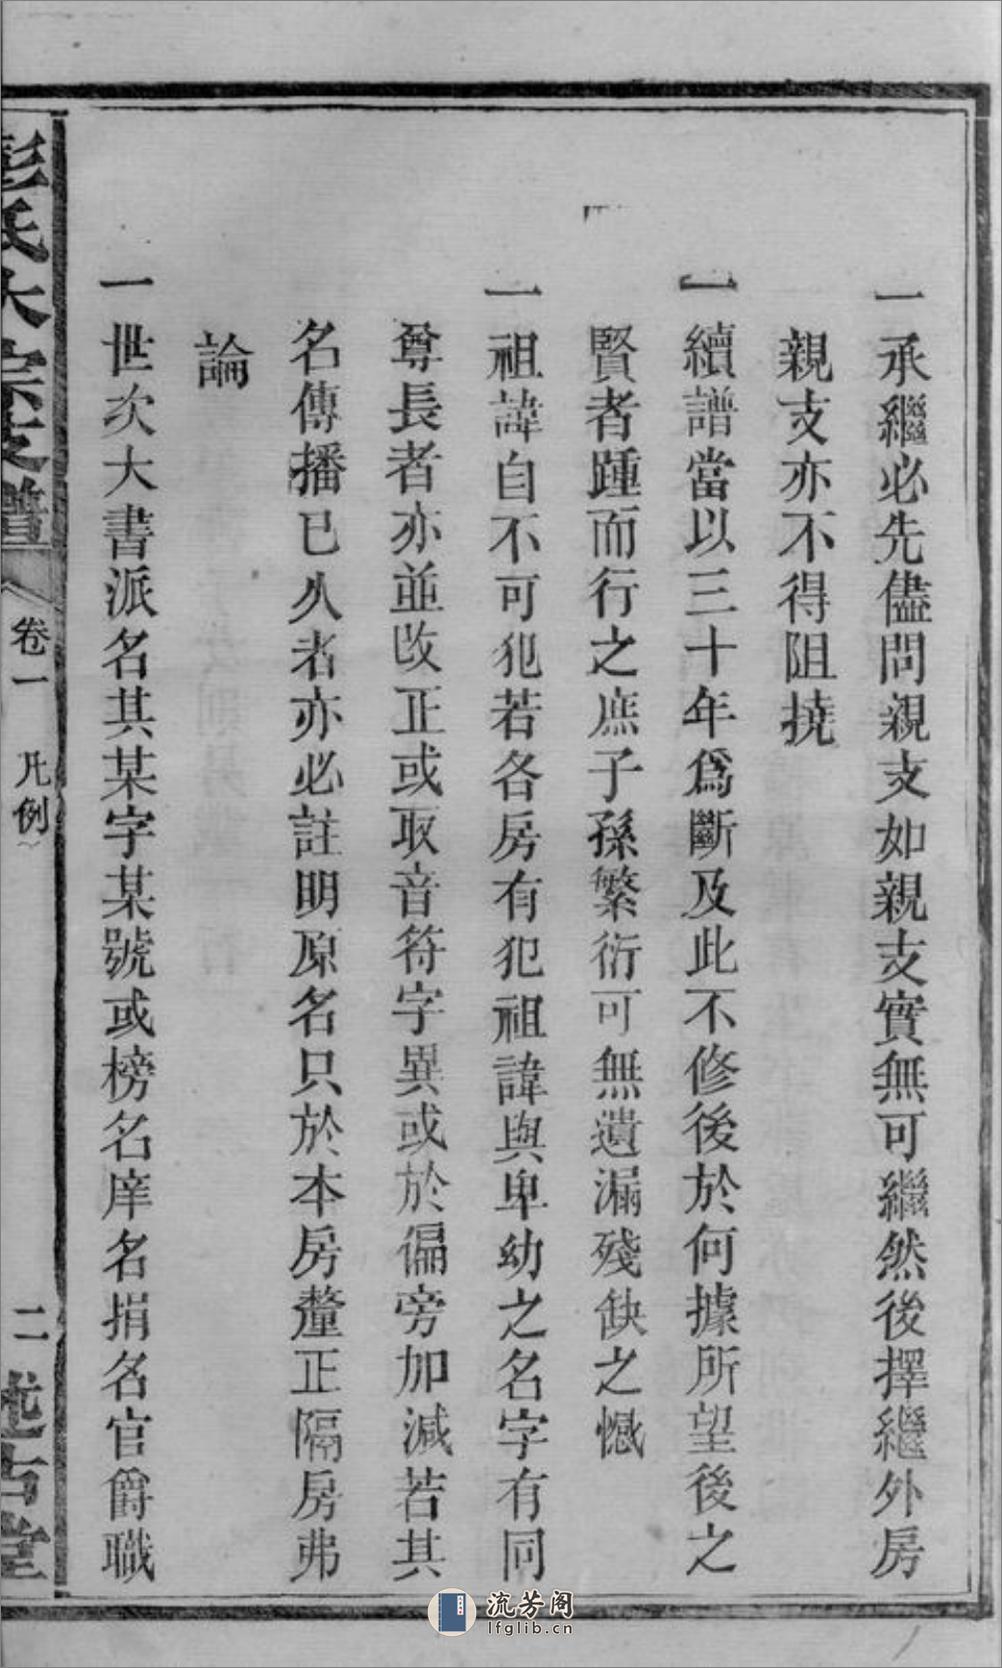 一承繼必先儘問親支如親支實無可繼然後擇繼外房
親支亦不得阻撓
一續譜當以三十年爲斷及此不修後於何據所望後之
賢者踵而行之庶子孫繁衍可無遺漏殘缺之憾
一祖諱自不可犯若各房有犯祖諱與卑幼之名字有同
尊長者亦並改正或取音符字異或於偏旁加減若其
名傳播已久者亦必註明原名只於本房釐正隔房弗
論
一世次大書派名其某字某號或榜名庠名捐名官爵職
彭氏大宗支譜
卷一 凡例
二 述古堂
流芳阁
lfglib.cn